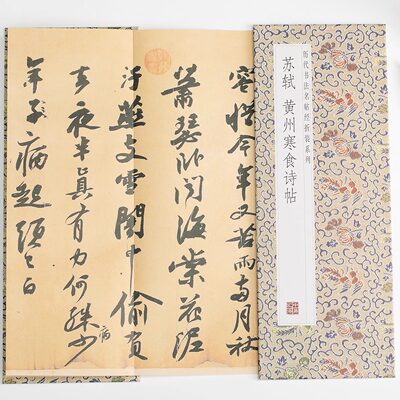 历代书法名帖经折装系列
苏轼 黄州寒食诗帖
容惜今年又苦雨兩月秋
蕭瑟卧聞海棠花泥
汙燕支雪闇中偷負
去夜半真有力何殊少
病
年子病起頭已白